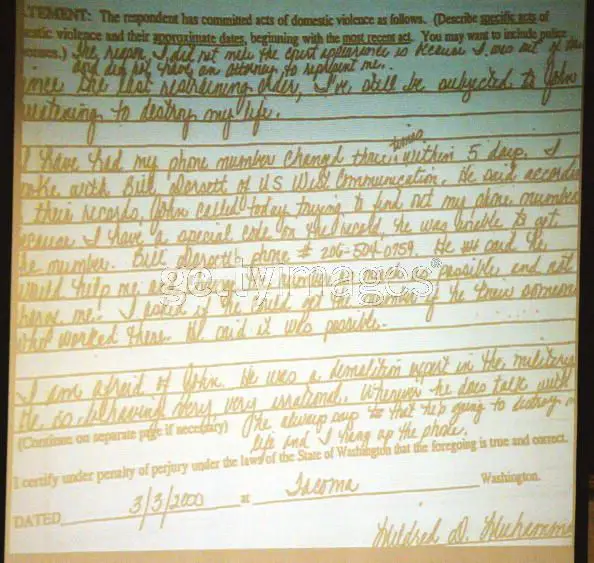 TEMENT: The respondent has committed acts of domestic violence as follows. (Describe specific acts of
estic violence and their approximate dates, beginning with the most recent act. You may want to include police
onses.) The reason I did not make the court appearance is because I was out of
and did not have an attorney to represent me.
ince the last restraining order, I've still be subjected to John
reatening to destroy my life.
I have had my phone number changed three times within 5 days. I
oke with Bill Dorsett of US West Communication. He said accordi
their records, John called today trying to find out my phone number
ecause I have a special code on the record, he was unable to get
he number. Bill Dorsett's phone # 206-504-0759. He said he
would help me as much as possible and not
I asked if he could get the number if he knew someone
who worked there. He said it was possible.
I am afraid of John. He was a demolition expert in the military
He is behaving very, very irrational. Whenever he does talk with
(Continue on separate page if necessary) he always says that he's going to destroy m
life and I hang up the phone.
I certify under penalty of perjury under the laws of the State of Washington that the foregoing is true and correct.
DATED 3/3/2000 at Tacoma Washington.
Mildred D. Muhamma
gettyimages®